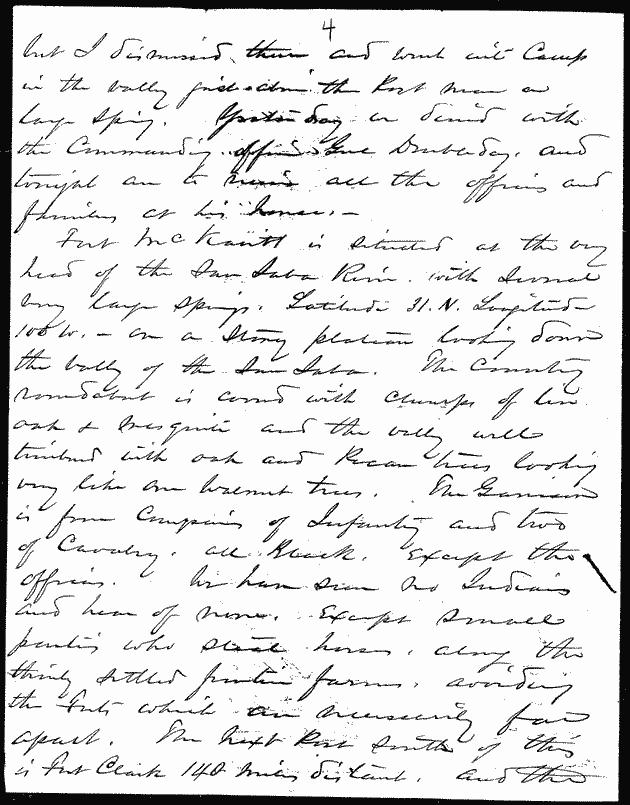 4
but I dismissed them and went into Camp
in the valley just above the Post near a
large Spring. Yesterday we dined with
the Commanding officer Genl Doubleday, and
tonight am to meet all the officers and
families at his house. —
Fort McKavitt is situated at the very
head of the San Saba River. with several
very large Springs. Latitude 31. N. Longitude
100 W. — on a Stony plateau looking down
the valley of the San Saba. The Country
roundabout is covered with clumps of live
oak & mesquite and the valley well
timbered with oak and Pecan trees looking
very like our Walnut trees. The Garrison
is four Companies of Infantry and two
of Cavalry. all Black. Except the
officers. We have seen no Indians
and hear of none. Except small
parties who steal horses, along the
thinly settled frontier farms. avoiding
the Forts which are necessarily far
apart. The next Post South of this
is Fort Clark 140 miles distant. and the